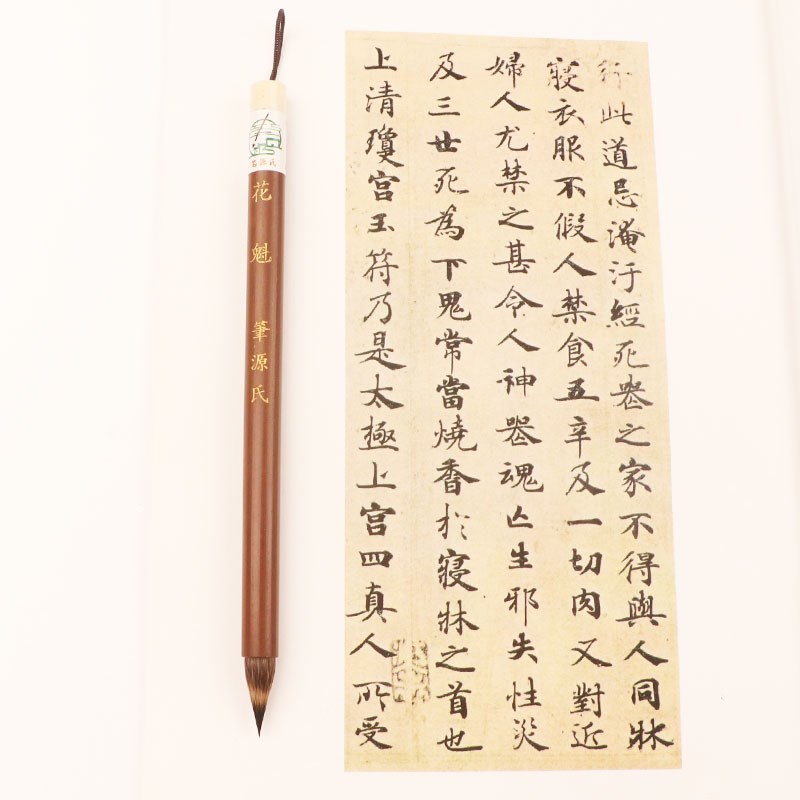 行此道忌淹汙經死䘮之家不得與人同牀
寢衣服不假人禁食五辛及一切肉又對近
婦人尤禁之甚令人神䘮魂亾生邪失性災
及三世死為下鬼常當燒香於寢牀之首也
上清瓊宮玉符乃是太極上宮四真人所受
花魁 筆源氏